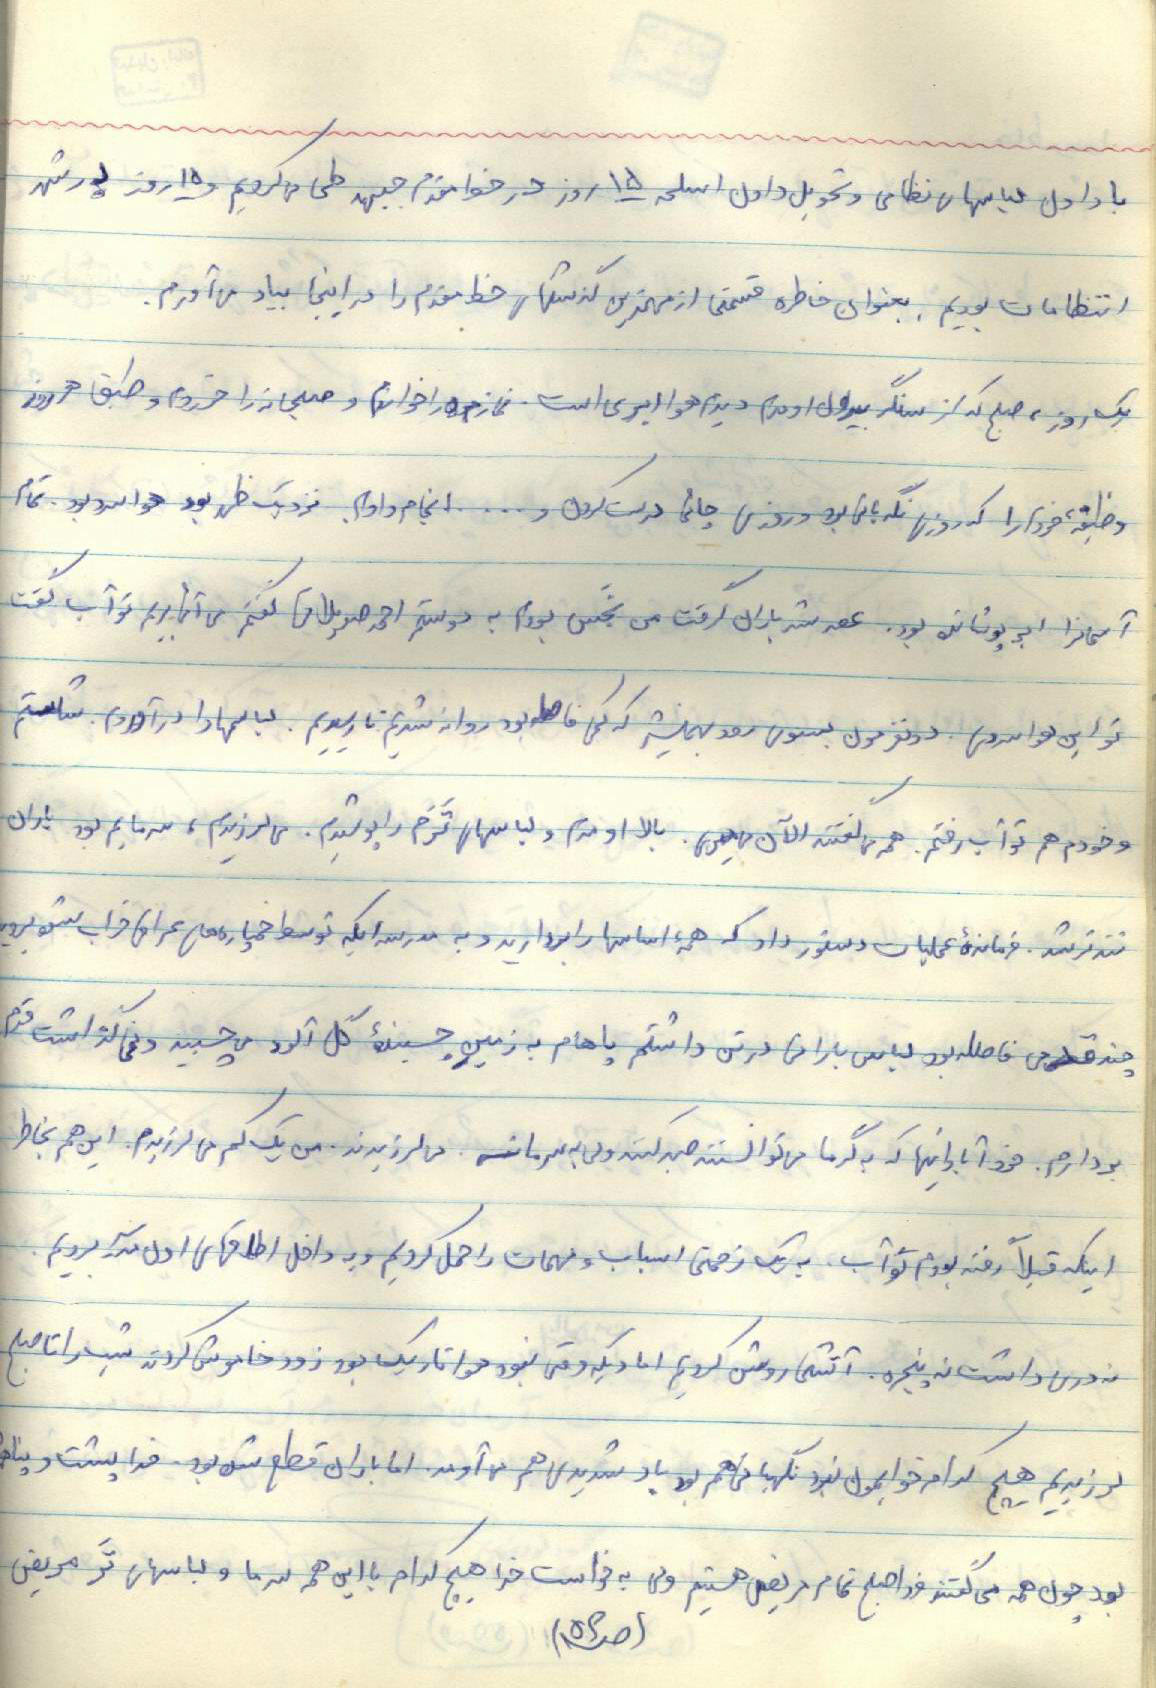 با دادن لباسهای نظامی و تحویل دادن اسلحه ۱۵ روز در خط مقدم جبهه طی می‌کردیم و ۱۵ روز در شهر
انتظامات بودیم. بعنوان خاطره قسمتی از مهمترین گذشتهای خط مقدم را در اینجا بیاد می‌آورم.
یک روز، صبح که از سنگر بیرون اومدم دیدم هوا ابری است. نمازم را خواندم و صبحانه را خوردم و طبق هر روز
وظیفهٔ خود را که روزی نگهبانی بود و روزی چائی درست کردن و ..... انجام دادم. نزدیک ظهر بود هوا سرد بود. تمام
آسمانرا ابر پوشانده بود. عصر شد باران گرفت من نجس بودم به دوستم احمد گفتم می‌آئی بریم تو آب گفت
تو این هوا سردی. دو نفرمون بسوی رود بهمنشیر که کمی فاصله بود روانه شدیم تا رسیدیم. لباسها را درآوردم. شستم
و خودم هم تو آب رفتم. همه می‌گفتند الآن می‌میری. بالا اومدم و لباسهای ترم را پوشیدم. می‌لرزیدم، سرمایم بود باران
تندتر شد. فرماندهٔ عملیات دستور داد که همهٔ اساسها را بردارید و به مدرسه‌ایکه توسط خمپاره‌های عراقی خراب شده بروید
چند قدمی فاصله بود لباس بارانی در تن داشتم پاهام به زمین چسبندهٔ گل آلود می‌چسبید و نمی‌گذاشت قدم
بردارم. خود آبادانیها که به گرما می‌توانستند صبر کنند ولی به سرما نه. می‌لرزیدند. من یک کم می‌لرزیدم. این هم بخاطر
اینکه قبلاً رفته بودم تو آب. به یک زحمتی اسباب و مهمات را حمل کردیم و به داخل اطاقهای اون مدرسه بردیم.
نه دری داشت نه پنجره. آتشی روشن کردیم اما دیگه وقتی نبود هوا تاریک بود زود خاموش کردند شب را تا صبح
لرزیدیم هیچ کدام خوابمون نبرد نگهبانی هم بود باد شدیدی هم می‌آومد. اما باران قطع شده بود. خدا پشت و پناه
بود چون همه می‌گفتند فردا صبح تمام مریض هستیم ولی به خواست خدا هیچ کدام با این همه سرما و لباسهای تر مریض